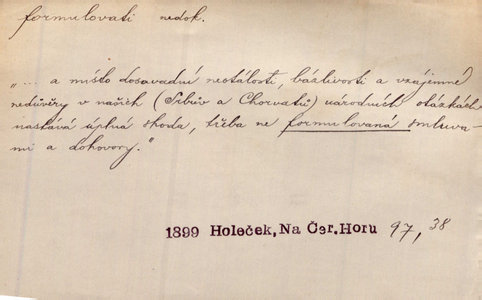 formulovati nedok.
„... a místo dosavadní nestálosti, bázlivosti a vzájemné
nedůvěry v našich (Srbův a Chorvatů) národních otázkách
nastává úplná shoda, třeba ne formulovaná smluva-
mi a dohovory."
1899 Holeček, Na Čer. Horu 97, 38